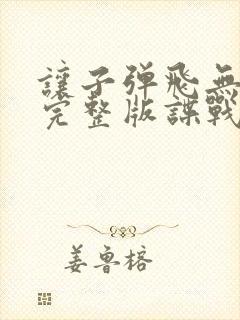 讓子弹飛無
完整版諜戰
姜魯榕